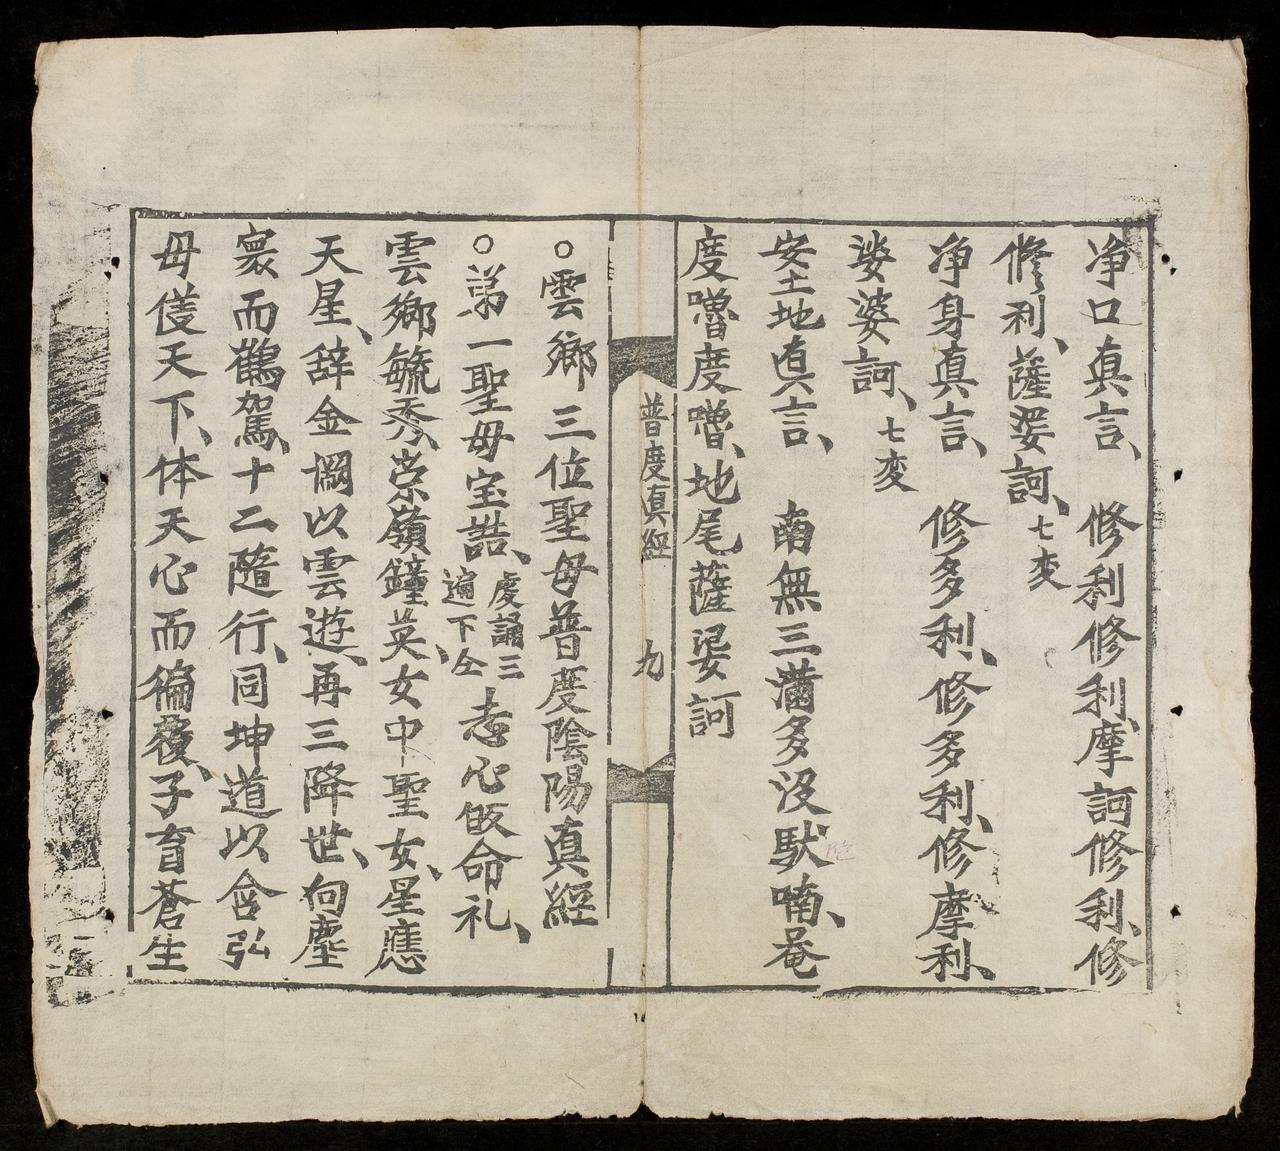 净口真言、　修利修利、摩訶修利、修
修利、薩婆訶、七変
净身真言、　修多利、修多利、修摩利、
娑婆訶、七変
安土地真言、　南無三滿多沒馱喃、菴
度嚕度嚕、地尾薩婆訶
普度真經　九
○雲鄉三位聖母普度陰陽真經
○弟一聖母宝誥、虔誦三遍下仝 志心皈命礼、
雲鄉毓秀、崇嶺鐘英、女中聖女、星應
天星、辞金闕以雲遊、再三降世、向塵
寰而鶴駕、十二隨行、同坤道以含弘
母儀天下、体天心而徧覆、子育蒼生